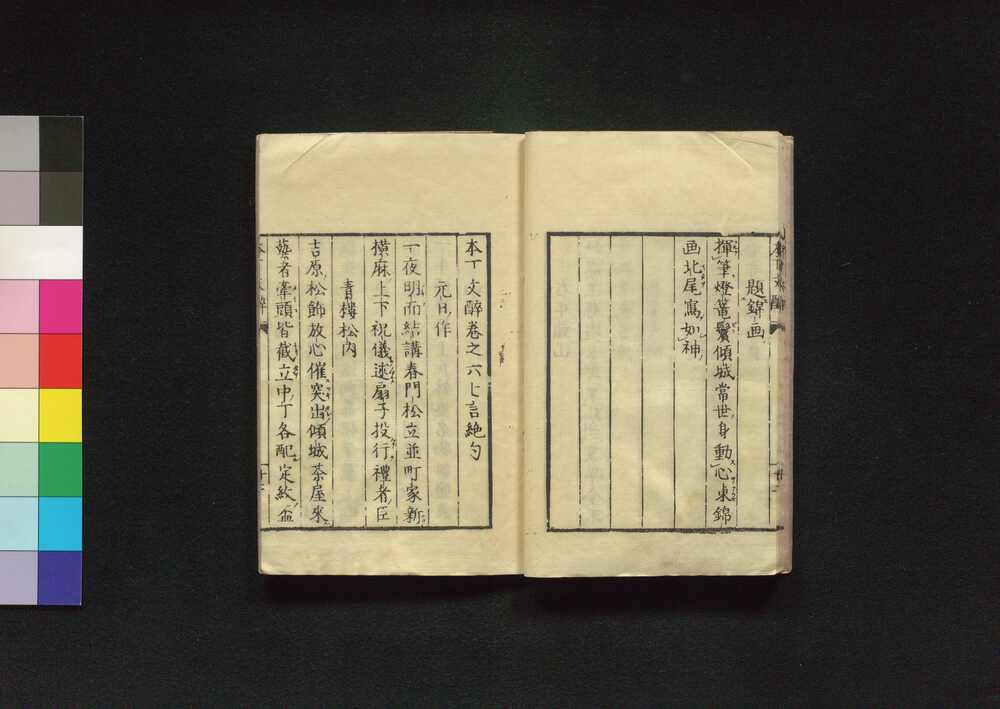 題錦画
揮筆燈篭鬢傾城當世身動心東錦
画北尾寫如神
本丁文醉巻之六七言絶句
元日作
一夜明而結講春門松立並町家新
横麻上下祝儀述扇子投行禮者臣
青樓松内
吉原松飾放心催突出傾城茶屋來
藝者牽頭皆截立中丁各配定紋盃